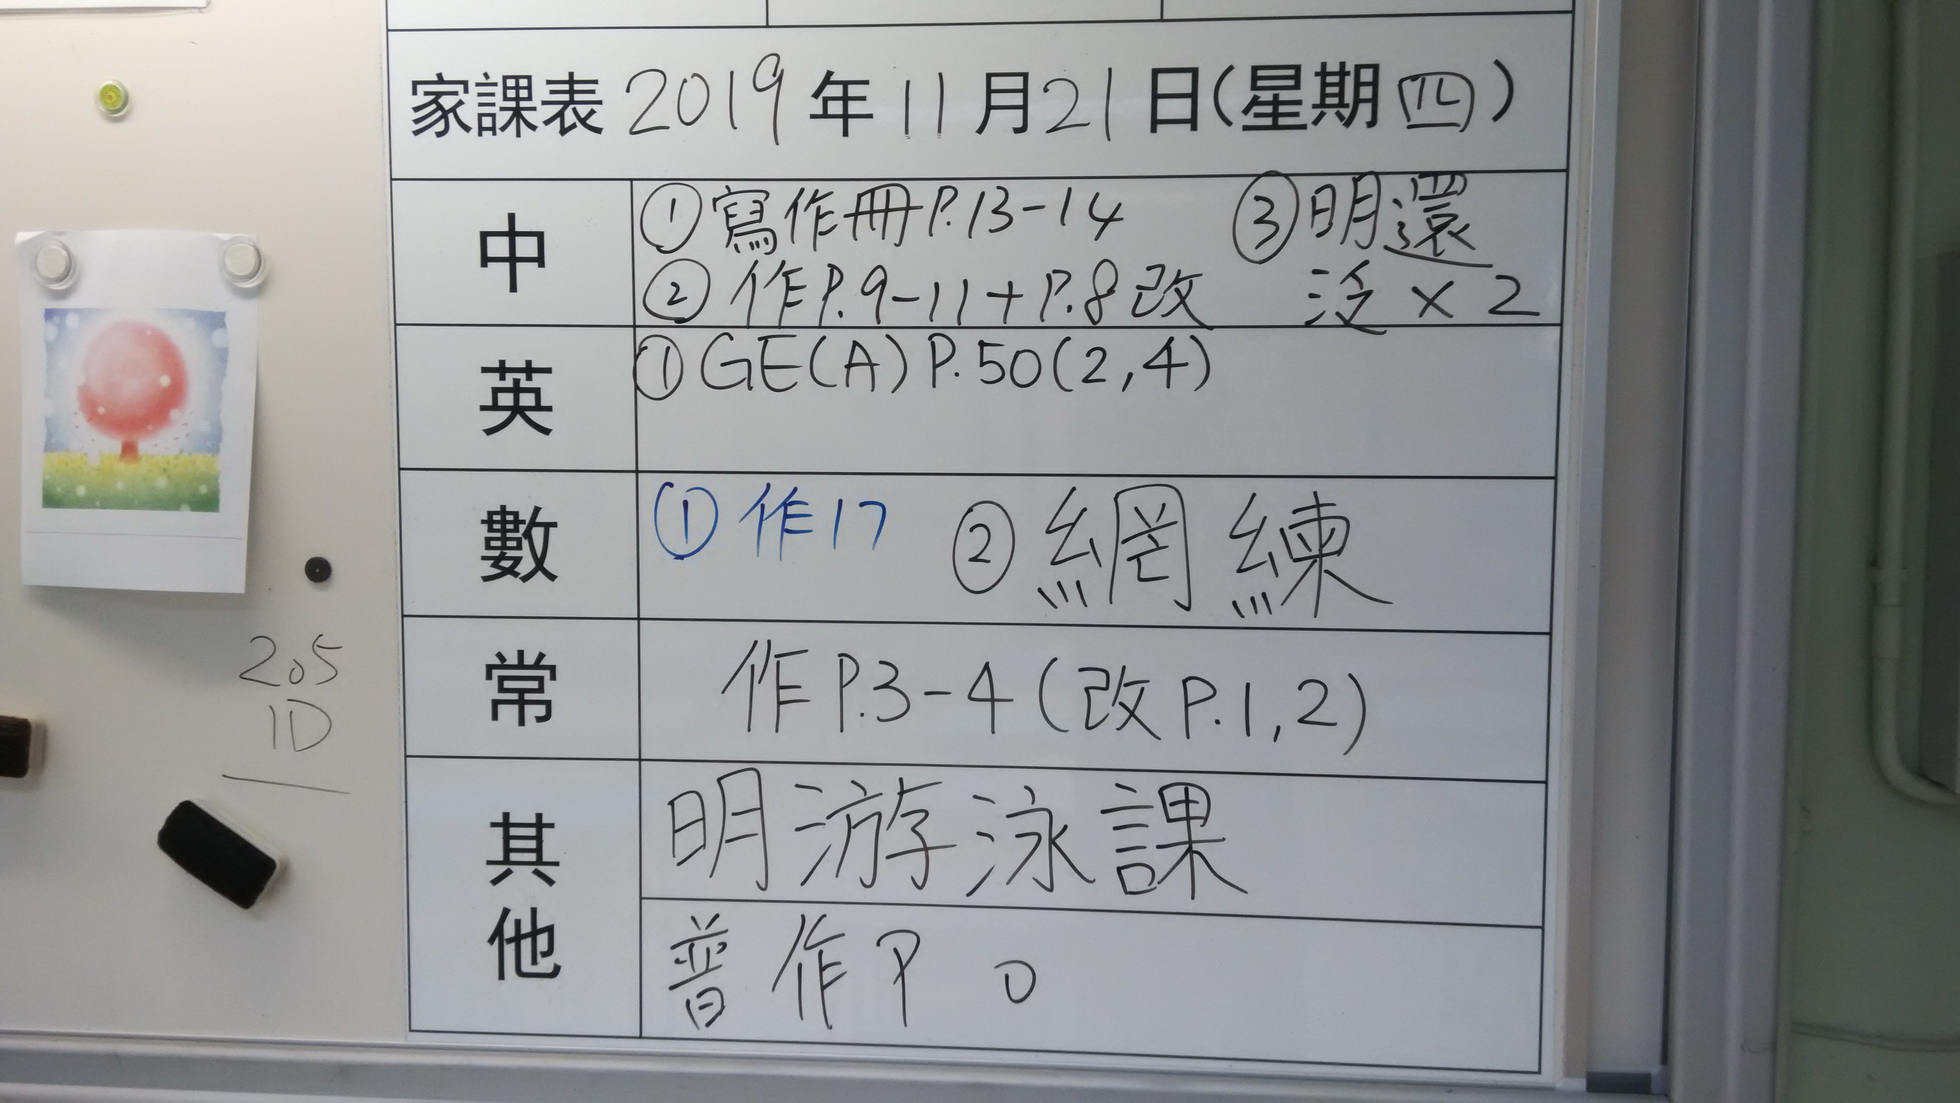 家課表 2019 年 11 月 21 日(星期 四)
中
① 寫作冊P.13-14 ③ 明還
② 作P.9-11+P.8改 泛×2
英
① GE(A) P.50(2,4)
數
① 作17 ② 網練
常
作P.3-4(改P.1,2)
其他
明游泳課
普作P 0
205
1D